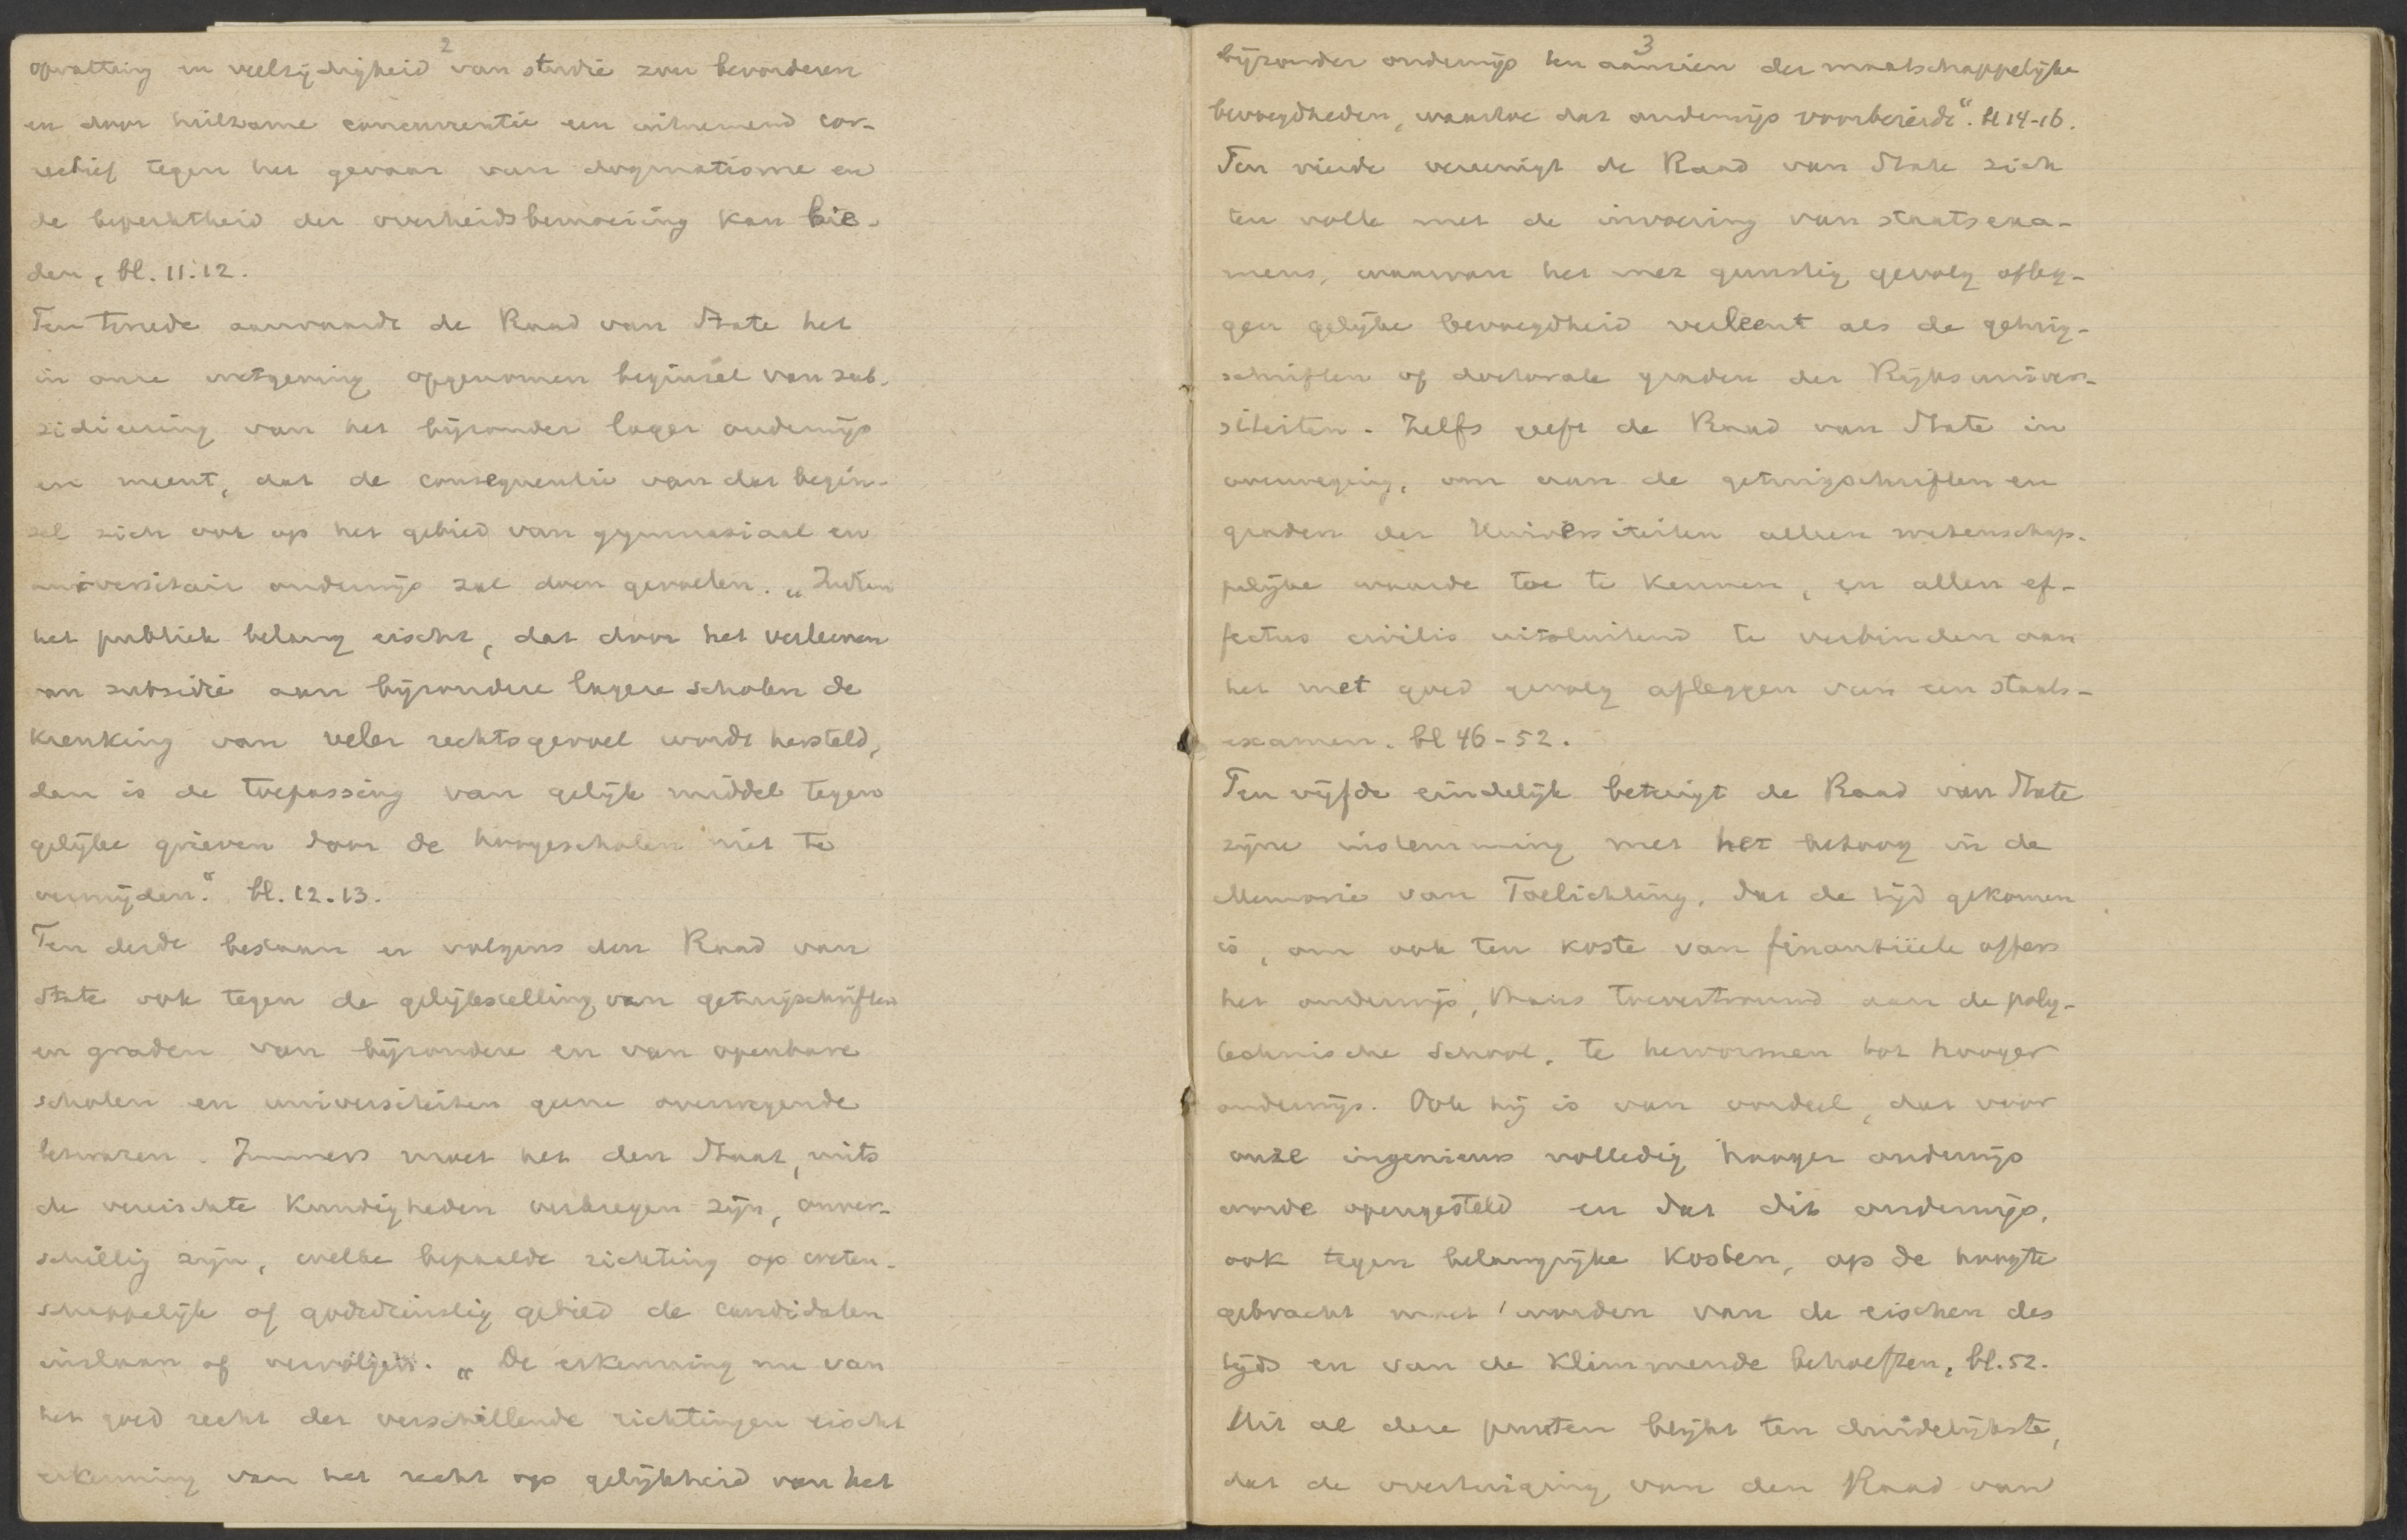 2
opvatting en veelzijdigheid van studie zou bevorderen
en door heilzame concurrentie een uitnemend cor-
rectief tegen het gevaar van dogmatisme en
de beperktheid der overheidsbemoeiing kan bie-
den, bl. 11.12.
Ten tweede aanvaardt de Raad van State het
in onze wetgeving opgenomen beginsel van sub-
sidieering van het bijzonder lager onderwijs
en meent, dat de consequentie van dat begin-
sel zich ook op het gebied van gymnasiaal en
universitair onderwijs zal doen gevoelen. „Indien
het publiek belang eischt, dat door het verleenen
van subsidie aan bijzondere lagere scholen de
krenking van veler rechtsgevoel wordt hersteld,
dan is de toepassing van gelijk middel tegen
gelijke grieven door de hoogescholen niet te
vermijden.“ bl. 12.13.
Ten derde bestaan er volgens den Raad van
State ook tegen de gelijkstelling van getuigschriften
en graden van bijzondere en van openbare
scholen en universiteiten geene overwegende
bezwaren. Immers moet het den Staat, mits
de vereischte kundigheden verkregen zijn, onver-
schillig zijn, welke bepaalde richting op weten-
schappelijk of godsdienstig gebied de candidaten
inslaan of vervolgen. „De erkenning nu van
het goed recht der verschillende richtingen eischt
erkenning van het recht op gelijkheid van het
3
bijzonder onderwijs ten aanzien der maatschappelijke
bevoegdheden, waartoe dat onderwijs voorbereidt“. bl 14-16.
Ten vierde vereenigt de Raad van State zich
ten volle met de invoering van staatsexa-
mens, waarvan het met gunstig gevolg afleg-
gen gelijke bevoegdheid verleent als de getuig-
schriften of doctorale graden der Rijksuniver-
siteiten. Zelfs geeft de Raad van State in
overweging, om aan de getuigschriften en
graden der Universiteiten alleen wetenschap-
pelijke waarde toe te kennen, en allen ef-
fectus civilis uitsluitend te verbinden aan
het met goed gevolg afleggen van een staats-
examen. bl 46-52.
Ten vijfde eindelijk betuigt de Raad van State
zijne instemming met het betoog in de
Memorie van Toelichting, dat de tijd gekomen
is, om ook ten koste van finantiëele offers
het onderwijs, thans toevertrouwd aan de poly-
technische school, te hervormen tot hooger
onderwijs. Ook hij is van oordeel, dat voor
onze ingenieurs volledig hooger onderwijs
worde opengesteld en dat dit onderwijs,
ook tegen belangrijke kosten, op de hoogte
gebracht moet worden van de eischen des
tijds en van de klimmende behoeften, bl. 52.
Uit al deze punten blijkt ten duidelijkste,
dat de overtuiging van den Raad van